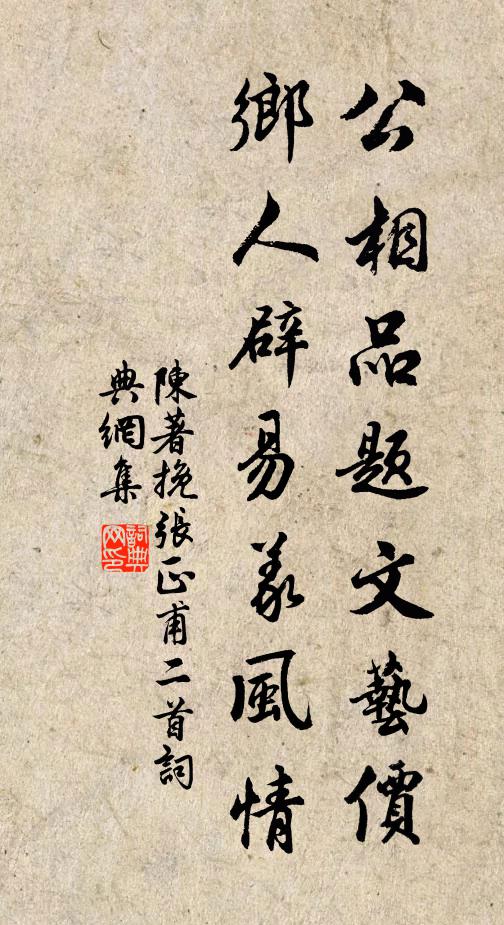 公相品題文藝價
鄉人辟易義風情
陳著挽張正甫二首詞
典網集
詞典網印